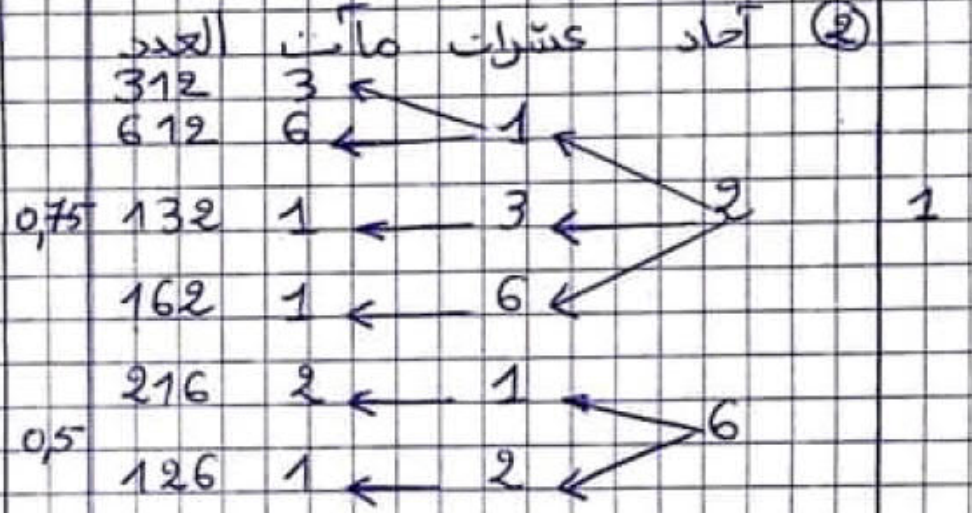 ② آحاد عشرات مآت العدد
312 3
612 6 1
0,75 132 1 3 2 1
162 1 6
216 2 1
0,5 6
126 1 2